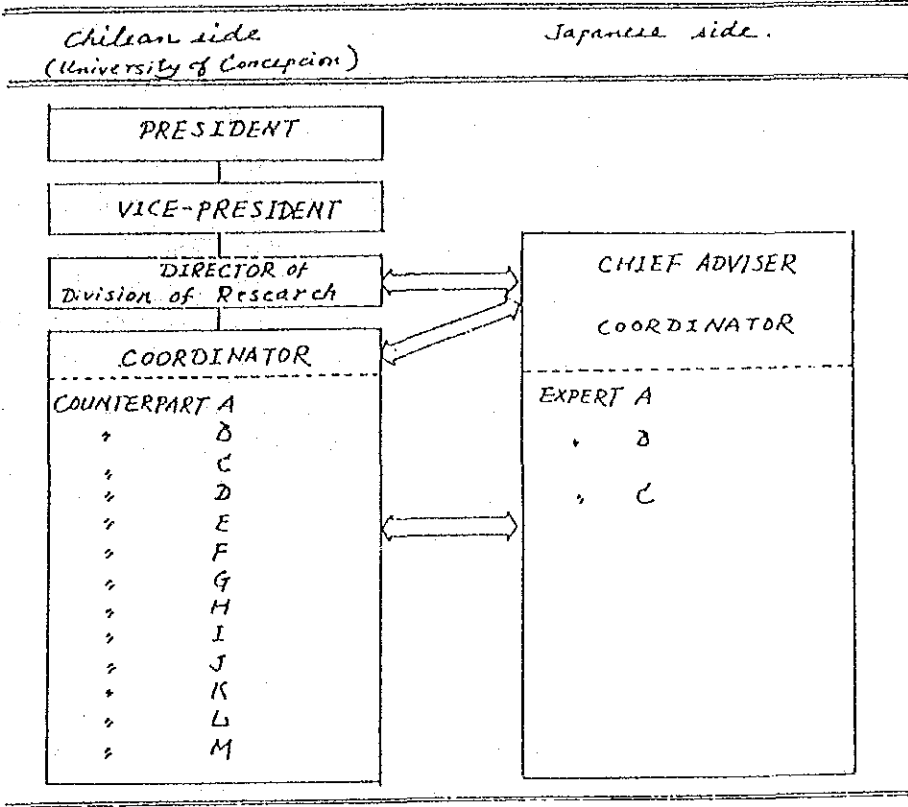 Chilean side
(University of Concepcion)
Japanese side.
PRESIDENT
VICE-PRESIDENT
DIRECTOR of
Division of Research
COORDINATOR
COUNTERPART A
〃 B
〃 C
〃 D
〃 E
〃 F
〃 G
〃 H
〃 I
〃 J
〃 K
〃 L
〃 M
CHIEF ADVISER
COORDINATOR
EXPERT A
〃 B
〃 C